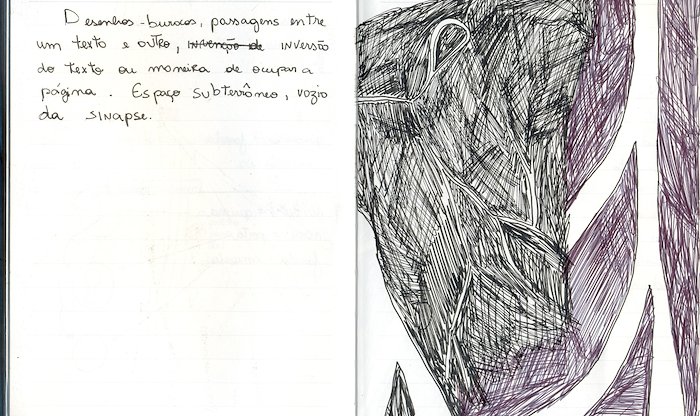 Desenhos-buracos, passagens entre
um texto e outro, invenção de inversão
do texto ou maneira de ocupar a
página. Espaço subterrâneo, vazio
da sinapse.